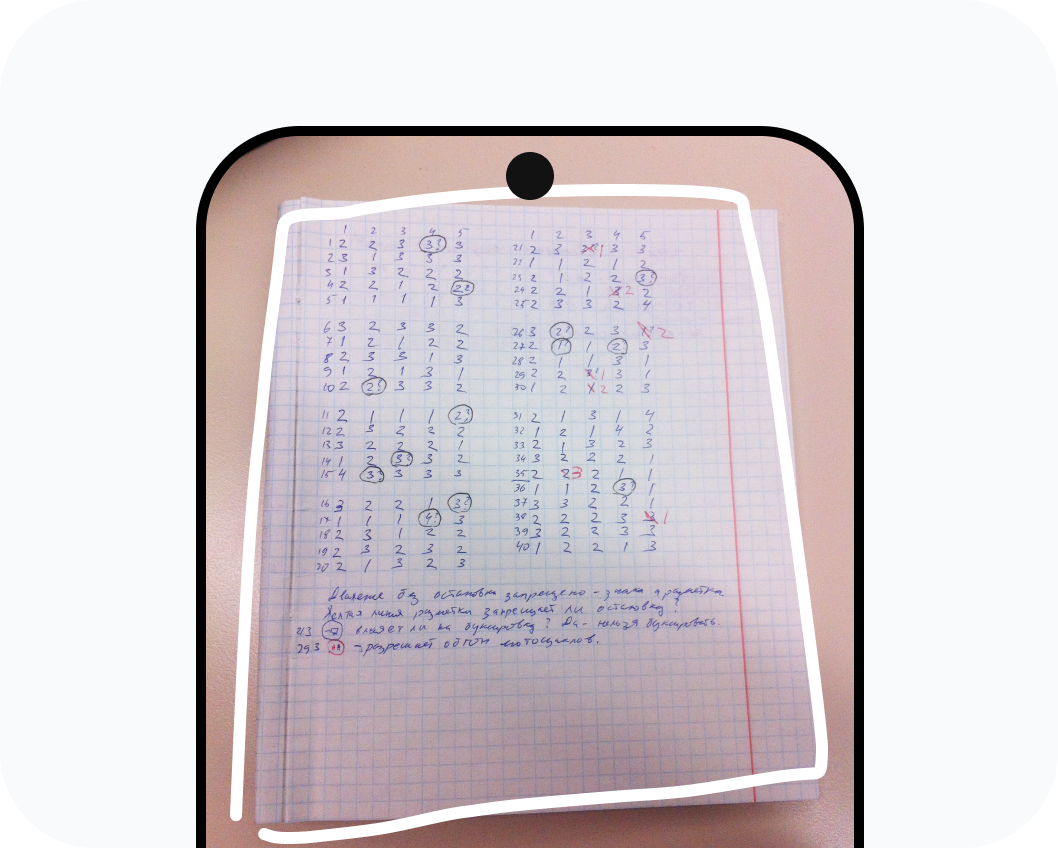 1 2 3 4 5
1 2 2 3 3? 3
2 3 1 3 3 3
3 1 3 2 2 2
4 2 2 1 2 2?
5 1 1 1 1 3
6 3 2 3 3 2
7 1 2 1 2 2
8 2 3 3 1 3
9 1 2 1 3 1
10 2 2? 3 3 2
11 2 1 1 1 2?
12 2 3 2 2 2
13 3 2 2 2 1
14 1 2 3? 3 2
15 4 3? 3 3 3
16 3 2 2 1 3?
17 1 1 1 4? 3
18 2 3 1 2 2
19 2 3 2 3 2
20 2 1 3 2 3
1 2 3 4 5
21 2 3 1 3 3
22 1 1 2 1 2
23 2 1 2 2 3?
24 2 2 1 3 2 2
25 2 3 3 2 4
26 3 2? 2 3 2
27 2 1? 1 2? 3
28 2 1 1 3 1
29 2 2 3? 1 3 1
30 1 2 2 2 3
31 2 1 3 1 4
32 1 2 1 4 2
33 2 1 3 2 3
34 3 2 2 2 1
35 2 2 3 2 1 1
36 1 1 2 3? 1
37 3 3 2 2 1
38 2 2 2 3 1
39 3 2 2 3 3
40 1 2 2 1 3
Движение без остановка запрещено - знака и разметка
Желтая линия разметки запрещает ли остановку?
213 влияет ли на буксировку? Да - нельзя буксировать.
293 → разрешает обгон мотоциклов.